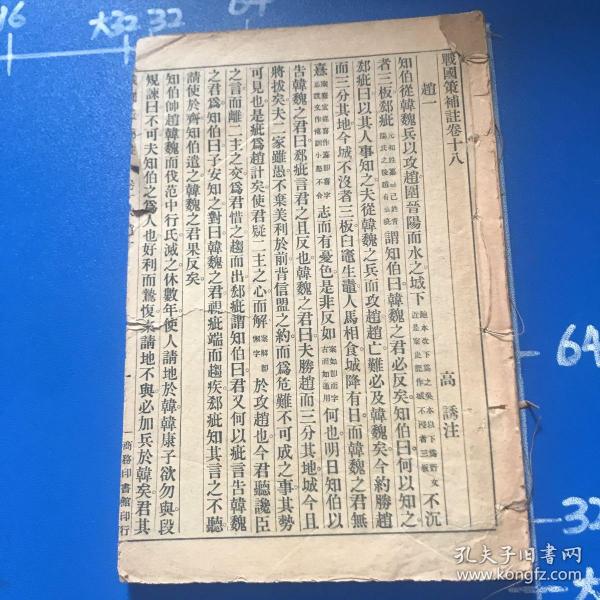 戰國策補註卷十八
趙一
高誘注
知伯從韓魏兵以攻趙圍晉陽而水之城下不沉
者三板郄疵謂知伯曰韓魏之君必反矣知伯曰何以知之
郄疵曰以其人事知之夫從韓魏之兵而攻趙趙亡難必及韓魏矣今約勝趙
而三分其地今城不沒者三板臼竈生鼃人馬相食城降有日而韓魏之君無
憙志而有憂色是非反如何也明日知伯以
告韓魏之君曰郄疵言君之且反也韓魏之君曰夫勝趙而三分其地城今且
將拔矣夫二家雖愚不棄美利於前背信盟之約而爲危難不可成之事其勢
可見也是疵爲趙計矣使君疑二主之心而解於攻趙也今君聽讒臣
之言而離二主之交爲君惜之趨而出郄疵謂知伯曰君又何以疵言告韓魏
之君爲知伯曰子安知之對曰韓魏之君視疵端而趨疾郄疵知其言之不聽
請使於齊知伯遣之韓魏之君果反矣
知伯帥趙韓魏而伐范中行氏滅之休數年使人請地於韓韓康子欲勿與段
規諫曰不可夫知伯之爲人也好利而鷙愎來請地不與必加兵於韓矣君其
商務印書館印行
孔夫子旧书网
www.kongfz.com
16
大32
32
64
64
32
大32